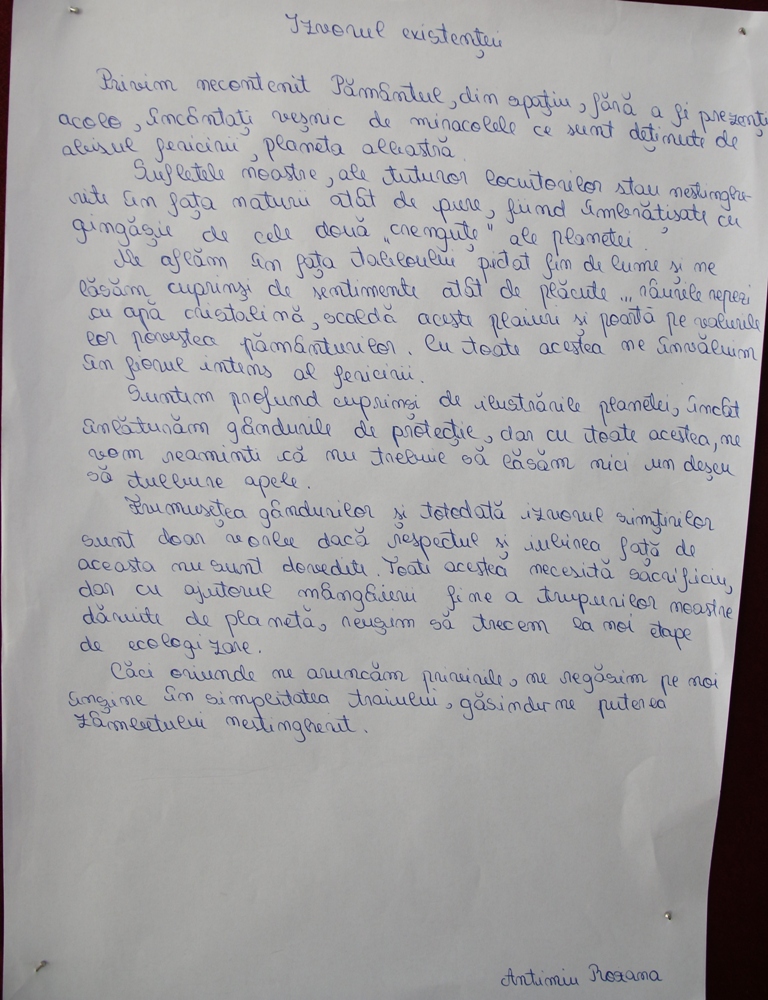 Izvorul existenței
Privim necontenit Pământul, din spațiu, fără a fi prezenți
acolo, încântați veșnic de miracolele ce sunt deținute de
abisul fericirii, planeta albastră.
Sufletele noastre, ale tuturor locuitorilor stau nestinghe-
rite în fața naturii atât de pure, fiind îmbrățișate cu
gingășie de cele două „crenguțe" ale planetei.
Ne aflăm în fața tabloului pictat fin de lume și ne
lăsăm cuprinși de sentimente atât de plăcute... râurile repezi
cu apă cristalină, scaldă aceste plaiuri și poartă pe valurile
lor povestea pământurilor. Cu toate acestea ne învăluim
în fiorul intens al fericirii.
Suntem profund cuprinși de ilustrările planetei, încât
înlăturăm gândurile de protecție, dar cu toate acestea, ne
vom reaminti că nu trebuie să lăsăm nici un deșeu
să tulbure apele.
Frumusețea gândurilor și totodată izvorul simțirilor
sunt doar vorbe dacă respectul și iubirea față de
aceasta nu sunt dovedite. Toate acestea necesită sacrificiu,
dar cu ajutorul mângâierii fine a trupurilor noastre
dăruite de planetă, reușim să trecem la noi etape
de ecologizare.
Căci oriunde ne aruncăm privirile, ne regăsim pe noi
înșine în simplitatea traiului, găsindu-ne puterea
zâmbetului nestingherit.
Antimiu Roxana